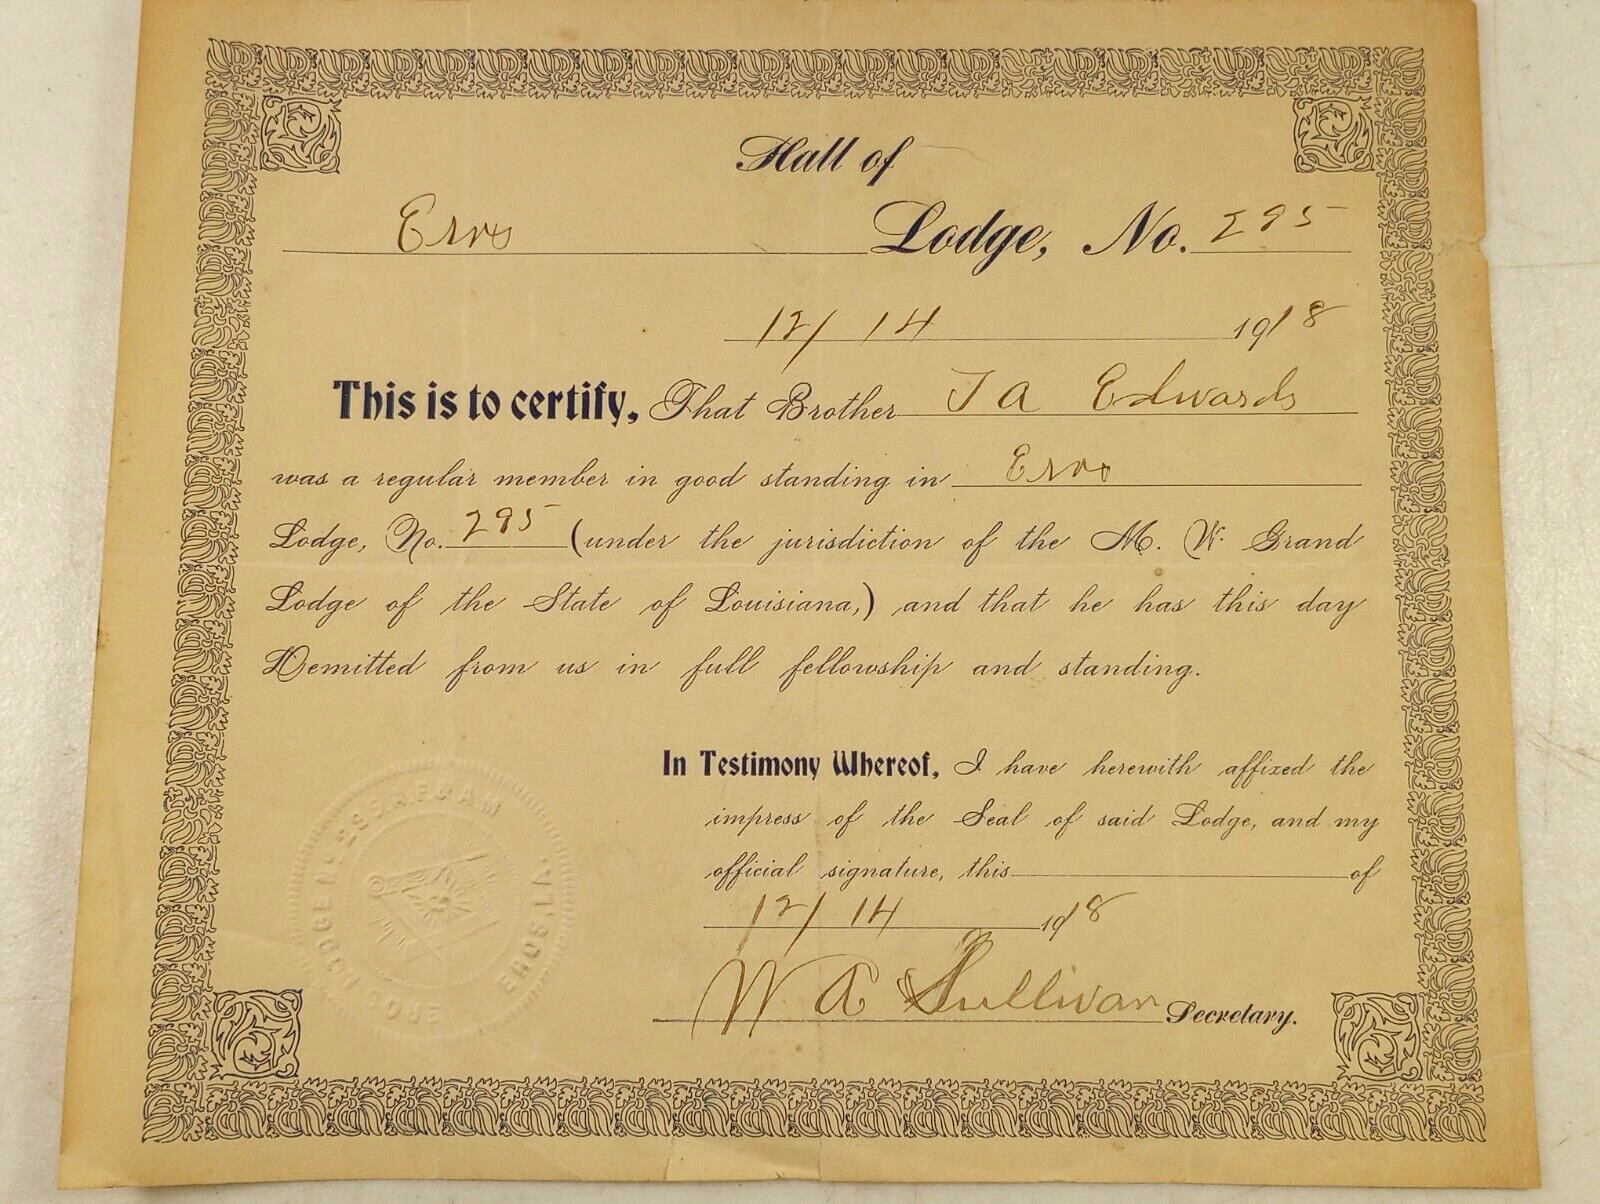 Hall of
Eros Lodge, No. 295
12/14 1918
This is to certify, That Brother T A Edwards
was a regular member in good standing in Eros
Lodge, No. 295 (under the jurisdiction of the M. W. Grand
Lodge of the State of Louisiana,) and that he has this day
Demitted from us in full fellowship and standing.
In Testimony Whereof, I have herewith affixed the
impress of the Seal of said Lodge, and my
official signature, this of
12/14 1918
W A Sullivan Secretary.
EROS LODGE NO 295. A.F & A M
EROS, LA.